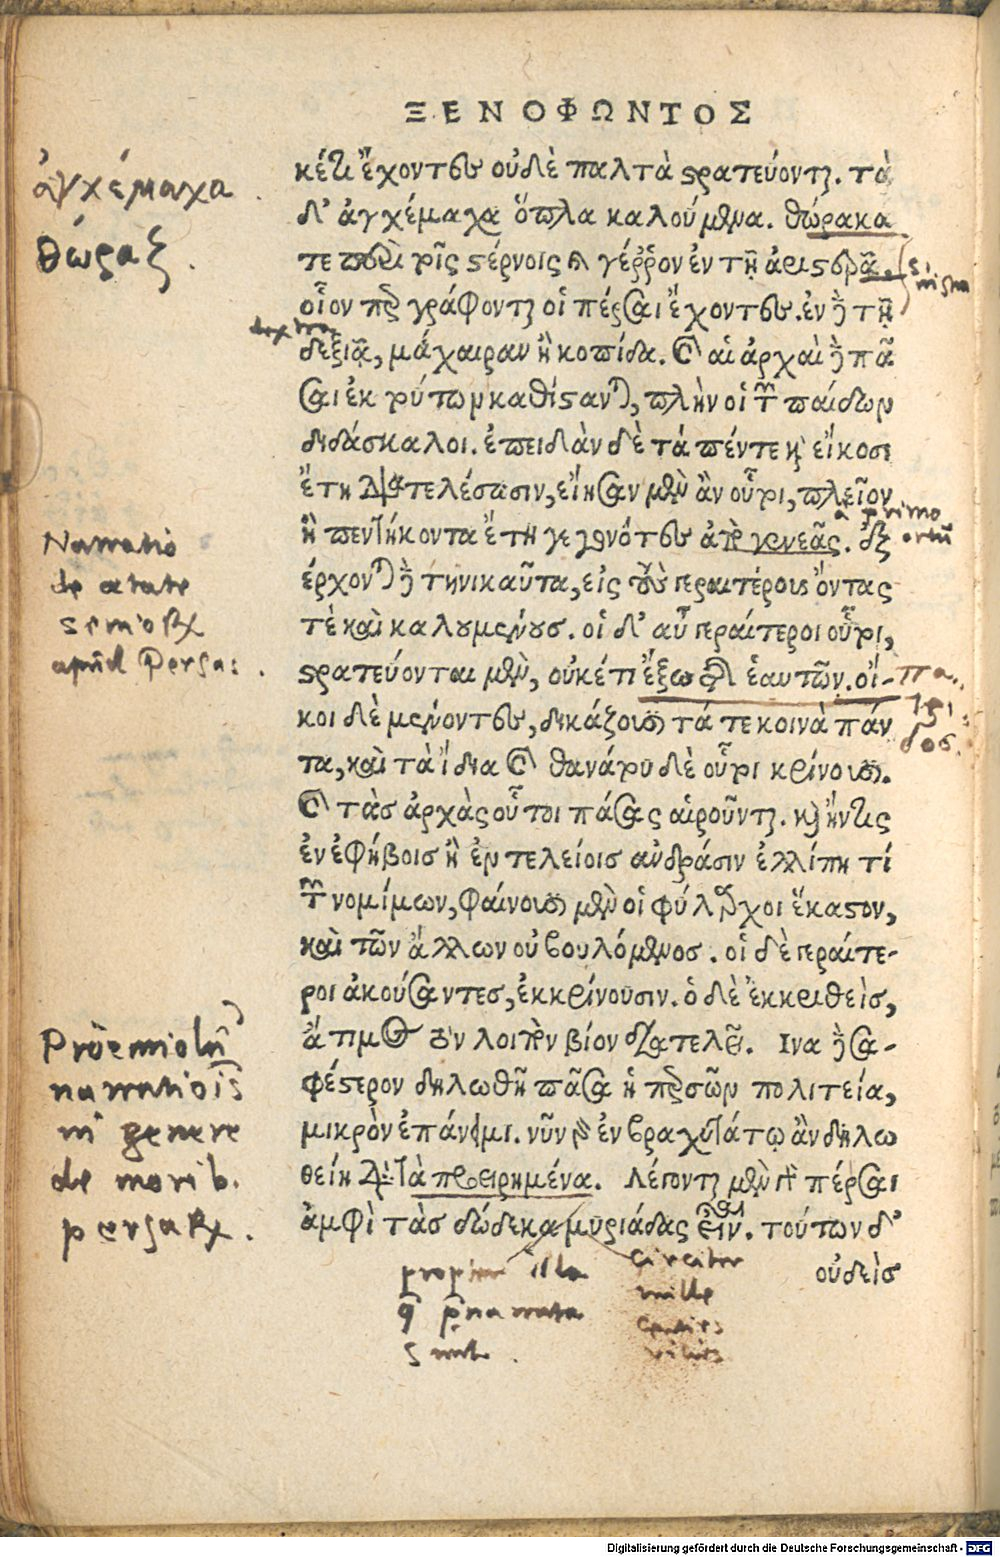 ΞΕΝΟΦΩΝΤΟΣ
κέτι ἔχοντες οὐδὲ παλτὰ στρατεύονται. τὰ
δ' ἀγχέμαχα ὅπλα καλούμενα. θώρακά
τε περὶ τοῖς στέρνοις καὶ γέρρον ἐν τῇ ἀριστερᾷ.
οἷόνπερ γράφονται οἱ πέρσαι ἔχοντες. ἐν δὲ τῇ
δεξιᾷ, μάχαιραν ἢ κοπίδα. καὶ αἱ ἀρχαὶ δὲ πᾶ
σαι ἐκ τούτων καθίστανται, πλὴν οἱ τῶν παίδων
διδάσκαλοι. ἐπειδὰν δὲ τὰ πέντε καὶ εἴκοσι
ἔτη διατελέσωσιν, εἴησαν μὲν ἂν οὗτοι, πλεῖον
ἢ πεντήκοντα ἔτη γεγονότες ἀπὸ γενεᾶς. ἐξ
έρχονται δὲ τηνικαῦτα, εἰς τοὺς γεραιτέρους ὄντας
τὲ καὶ καλουμένους. οἱ δ' αὖ γεραίτεροι οὗτοι,
στρατεύονται μὲν, οὐκέτι ἔξω τῆς ἑαυτῶν. οἴ-
κοι δὲ μένοντες, δικάζουσι τά τε κοινὰ πάν
τα, καὶ τὰ ἴδια καὶ θανάτου δὲ οὗτοι κρίνουσι.
καὶ τὰς ἀρχὰς οὗτοι πάσας αἱροῦνται. καὶ ἤν τις
ἐν ἐφήβοις ἢ ἐν τελείοις ἀνδράσιν ἐλλίπῃ τί
τῶν νομίμων, φαίνουσι μὲν οἱ φύλαρχοι ἕκαστον,
καὶ τῶν ἄλλων ὁ βουλόμενος. οἱ δὲ γεραίτε-
ροι ἀκούσαντες, ἐκκρίνουσιν. ὁ δὲ ἐκκριθεὶς,
ἄτιμος τὸν λοιπὸν βίον διατελεῖ. Ἵνα δὲ σα-
φέστερον δηλωθῇ πᾶσα ἡ περσῶν πολιτεία,
μικρὸν ἐπάνειμι. νῦν γὰρ ἐν βραχυτάτῳ ἂν δηλω
θείη διὰ τὰ προειρημένα. Λέγονται μὲν γὰρ πέρσαι
ἀμφὶ τὰς δώδεκα μυριάδας εἶναι. τούτων δ'
οὐδεὶς
ἀγχέμαχα
θώραξ.
sinistra
dextra
a primo
ortu
Narratio
de etate
senioRum
apud Persas.
πα
τρί
δος.
narrationis
in genere
de morib.
persaRum.
propter illa
que prenarrata
sunt.
circiter
mille